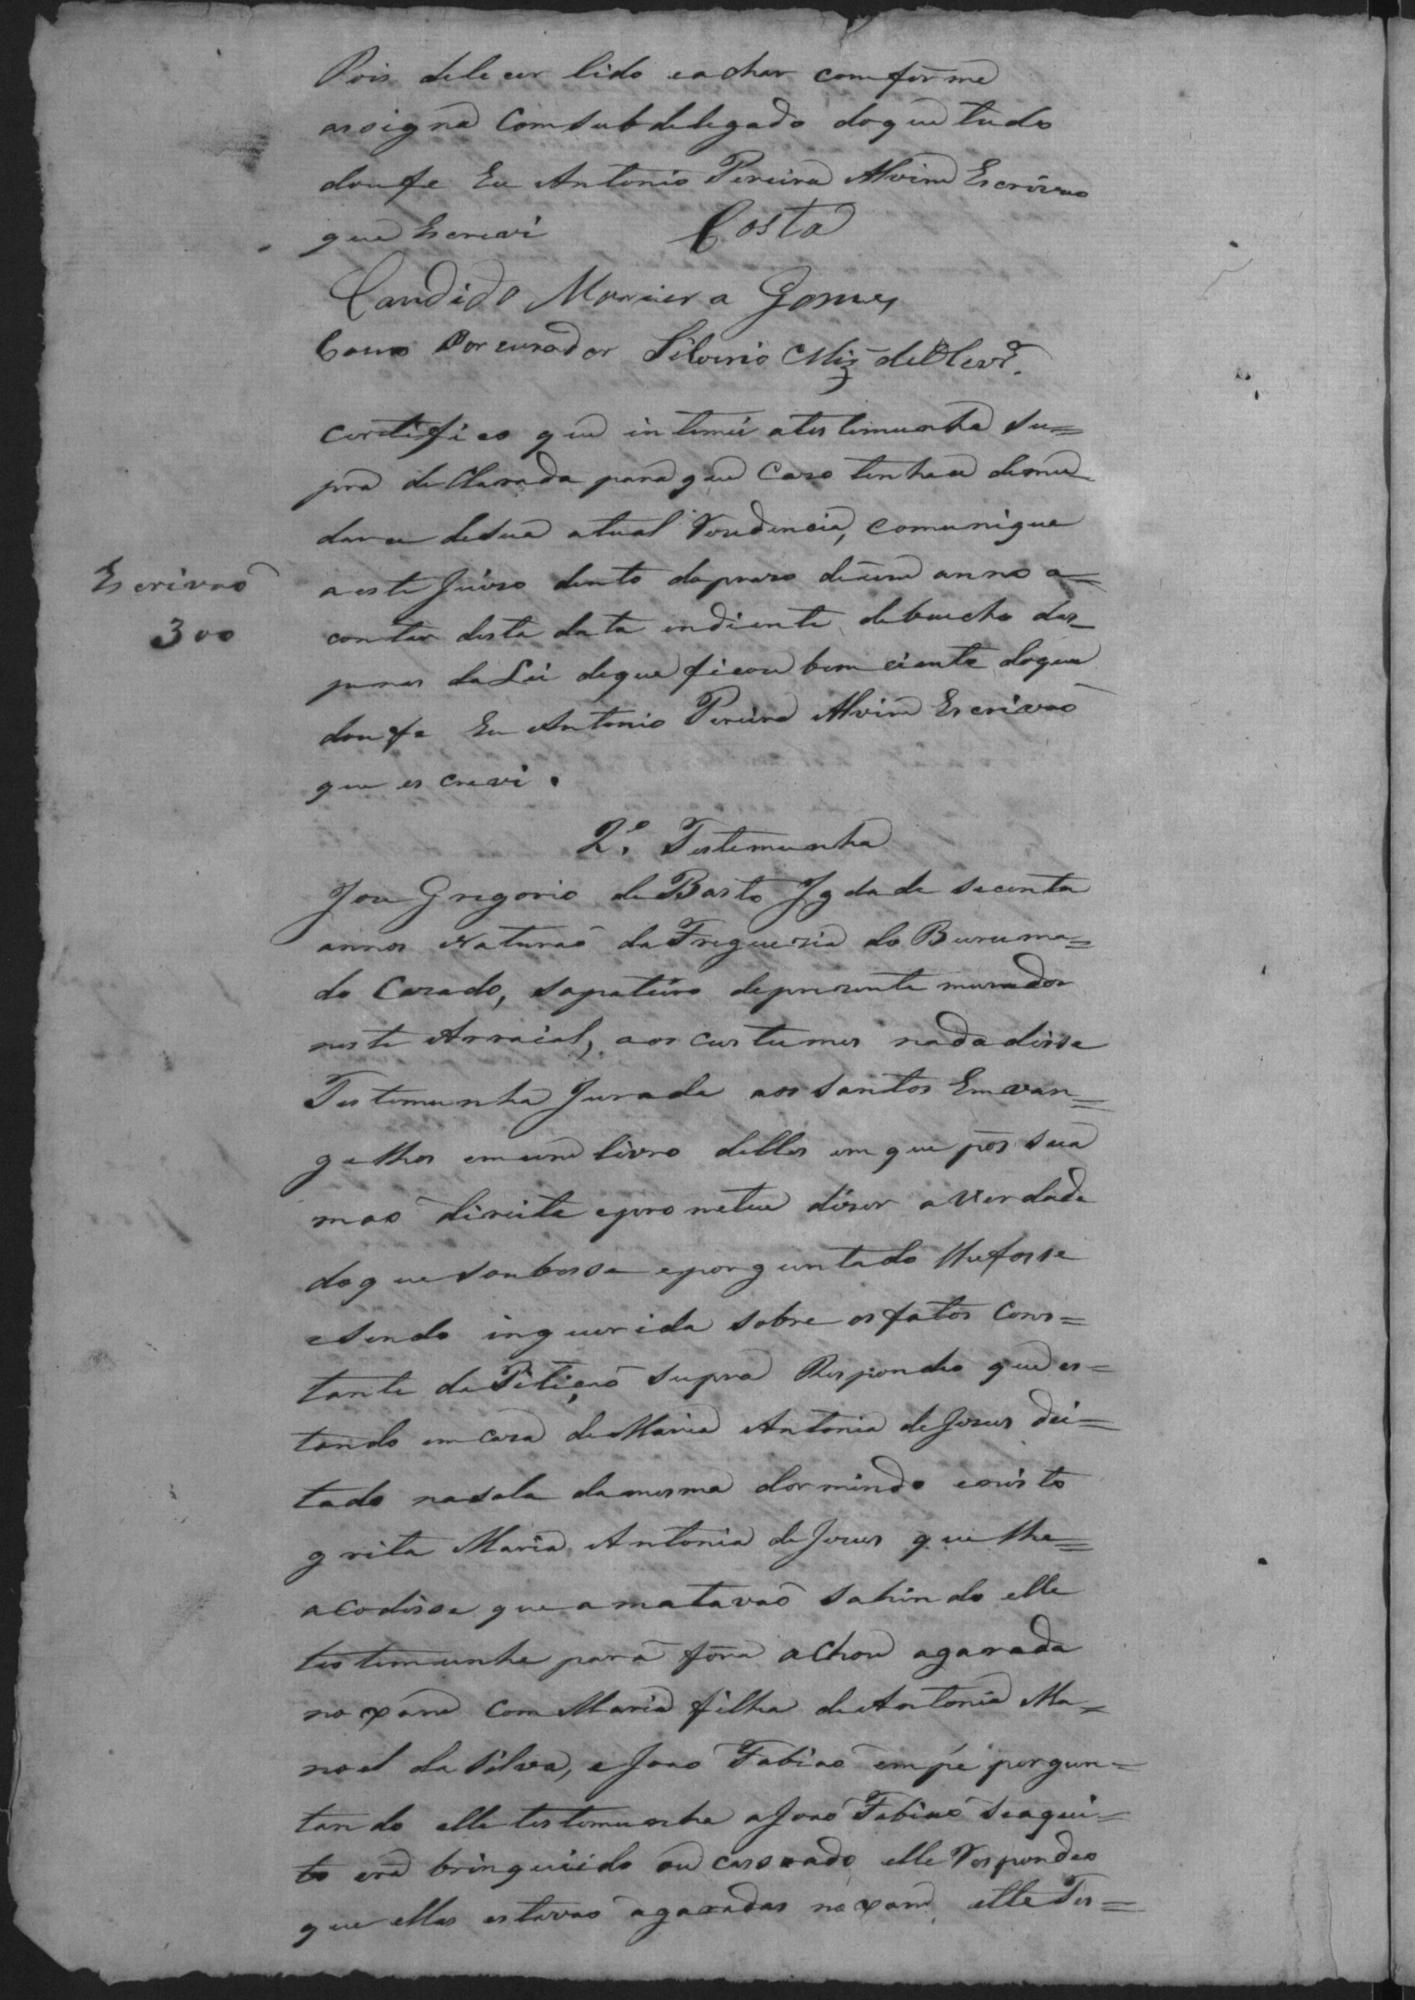 Pois dele ser lido e achar comforme
assigna Com subdelegado doque tudo
doufe Eu Antonio Pereira Alvim Escrivao
que Escrevi Costa
Candido Moreira Gomes
Como Porcurador Silverio Miz de Olevrª.
Certifico que intimei a testimunha Su=
pra deClarada para que Caso tenha de mu-
dar se desua atual Residencia, comunique
a este Juiso dento do praso de um anno a=
contar desta data em diente debaicho das-
penas da Lei de que ficou bem ciente doque
doufe Eu Antonio Pereira Alvim Escrivaõ
que es crevi.
Escrivaõ
300
2.º Testemunha
Jose Gregorio de Basto Igdade Secenta
annos Naturaõ da Freguesia do Buruma=
do Casado, sapateiro de presente murador
neste Arraial, aos custumes nada disse
Testemunha Jurada aos santos Emvan=
gelhos em um livro delles em que pôs sua
mao direita e prometeu diser a Verdade
do que soubesse e porguntado lhe fosse
e Sendo inquerida sobre os fatos Cons=
tante da Petiçaõ supra Respondeo que es=
tando em casa de Maria Antonia de Jesus dei=
tado na sala da mesma dormindo e nisto
grita Maria Antonia de Jesus que lhe=
acodisse que a matavaõ Sahindo elle
testimunha para fóra achou agarada
no xam Com Maria filha de Antonio Ma=
noel da Silva, e Joao Fabiao em pé porgun=
tando elle testemunha a Joaõ Fabiaõ Se aqui=
to era brinquiido ou cassoado elle Respondeo
que ellas estavao agaradas no xam, elle Tes=